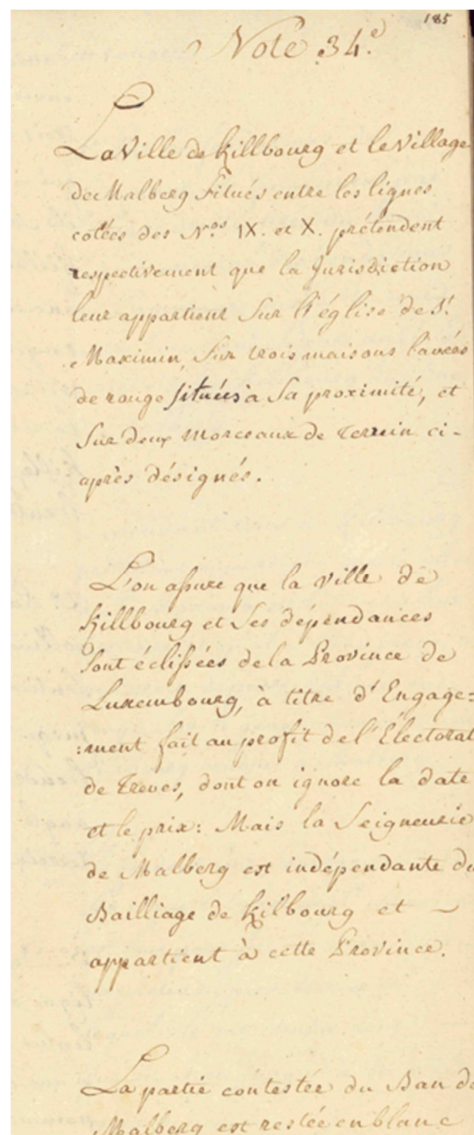 185
Note 34.e
La Ville de Killbourg et le Village
de Malberg Situés entre les lignes
cotées des N.os IX. et X. prétendent
respectivement que la Jurisdiction
leur appartient Sur l'église de S.t
Maximin, Sur trois maisons lavées
de rouge situées à Sa proximité, et
Sur deux morceaux de terrein ci-
après désignés.
L'on assure que la ville de
Killbourg et Ses dépendances
Sont éclissées de la Province de
Luxembourg, à titre d'Engage=
=ment fait au profit de l'Électorat
de Treves, dont on ignore la date
et le prix: Mais la Seigneurie
de Malberg est indépendante du
Bailliage de Kilbourg et ~
appartient à cette Province.
La partie contestée du Ban de
Malberg est restée en blanc